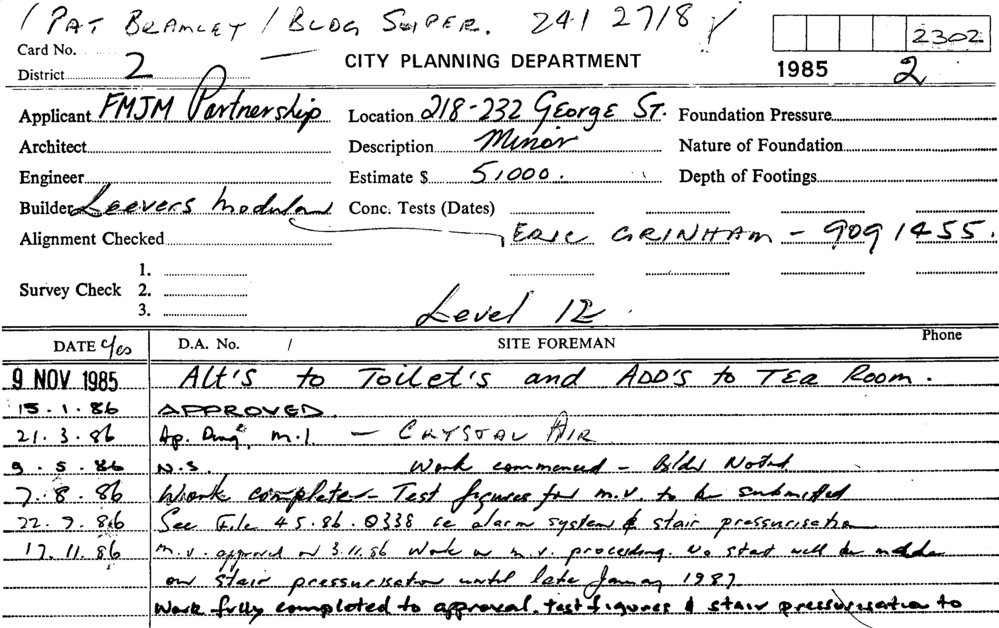 / PAT BRAMLEY / BLDG SUPER. 241 2718
Card No. 2302
District 2 CITY PLANNING DEPARTMENT 1985 2
Applicant FMJM Partnership Location 218-232 George St. Foundation Pressure
Architect Description Minor Nature of Foundation
Engineer Estimate $ 51000. Depth of Footings
Builder Leevers Modular Conc. Tests (Dates)
Alignment Checked ERIC GRINHAM - 909 1455.
1.
Survey Check 2.
3. Level 12.
DATE D.A. No. / SITE FOREMAN Phone
9 NOV 1985 Alt's to Toilet's and ADD's to Tea Room.
15.1.86 APPROVED.
21.3.86 Ap. m.v. - CRYSTAL AIR
9.5.86 N.S. Work commenced - Bldr Noted
7.8.86 Work complete - Test figures for m.v. to be submitted
22.7.86 See File 45.86.0338 re alarm system & stair pressurisation
17.11.86 m.v. approved on 3.11.86 Work on m.v. proceeding. No start will be made
on stair pressurisation until late January 1987
Work fully completed to approval. test figures & stair pressurisation to